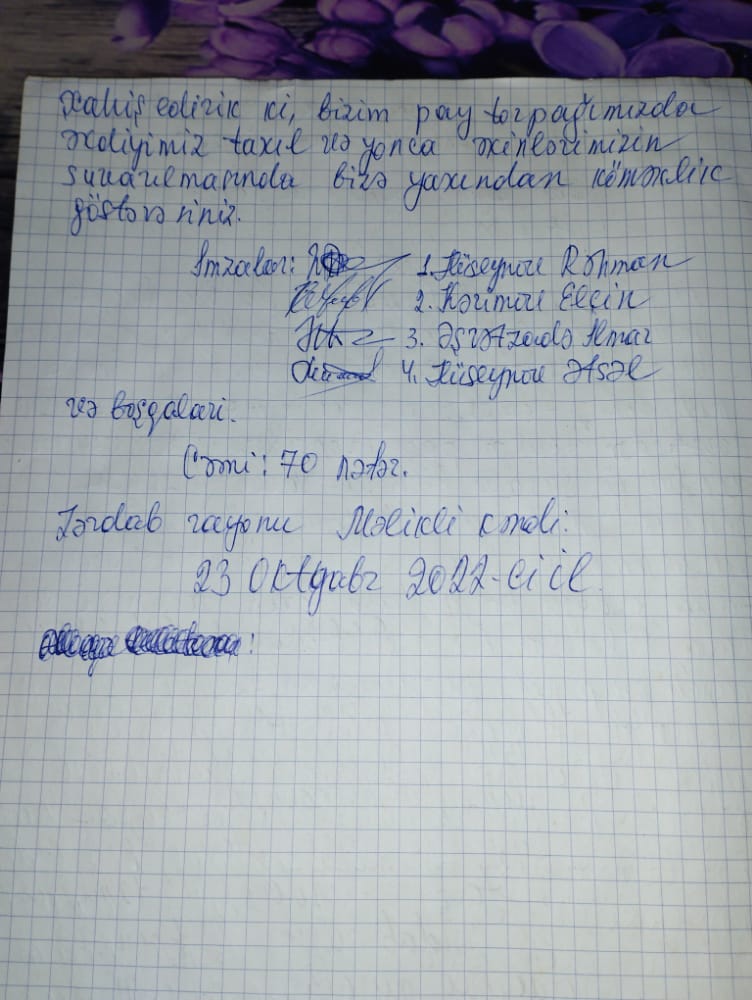 Xahiş edirik ki, bizim pay torpağımızda
əkdiyimiz taxıl və yonca əkinlərimizin
suvarılmasında bizə yaxından köməklik
göstərəsiniz.
İmzalar: 1. Hüseynov Rəhman
2. Kərimov Elçin
3. İlmar
4. Hüseynov
və başqaları.
Cəmi: 70 nəfər.
Zərdab rayonu Məlikli kəndi.
23 Oktyabr 2022-ci il.